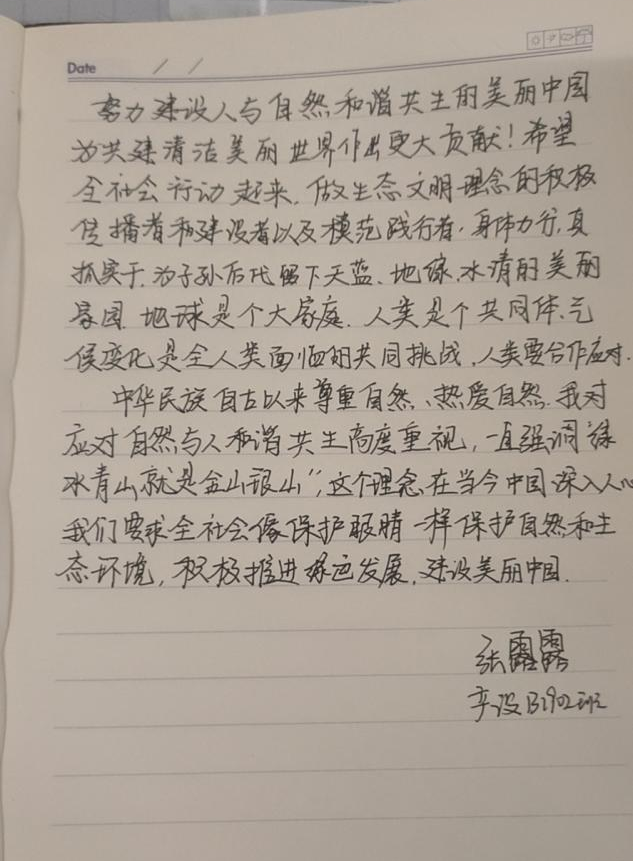 Date / /
努力建设人与自然和谐共生的美丽中国
为共建清洁美丽世界作出更大贡献！希望
全社会行动起来，做生态文明理念的积极
传播者和建设者以及模范践行者，身体力行，真
抓实干，为子孙后代留下天蓝、地绿、水清的美丽
家园，地球是个大家庭，人类是个共同体，气
候变化是全人类面临的共同挑战，人类要合作应对.
中华民族自古以来尊重自然、热爱自然，我对
应对自然与人和谐共生高度重视，一直强调绿
水青山就是金山银山”，这个理念在当今中国深入人心
我们要求全社会像保护眼睛一样保护自然和生
态环境，积极推进绿色发展，建设美丽中国.
张露露
产设B1902班